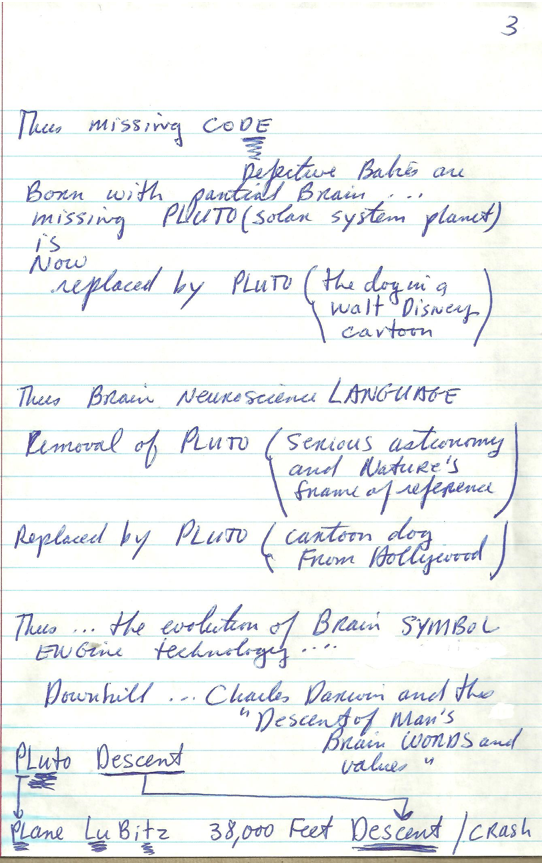 3
Thus missing CODE
Defective Babies are
Born with partial Brain ....
missing PLUTO (solar system planet)
is
Now
replaced by PLUTO (the dog in a
Walt Disney
cartoon)
Thus Brain Neuroscience LANGUAGE
Removal of PLUTO (serious astronomy
and Nature's
frame of reference)
Replaced by PLUTO (cartoon dog
From Hollywood)
Thus ... the evolution of Brain SYMBOL
ENGine technology ....
Downhill ... Charles Darwin and the
"Descent of Man's
Brain WORDS and
values"
PLuto Descent
PLane LuBitz 38,000 Feet Descent / CRASH